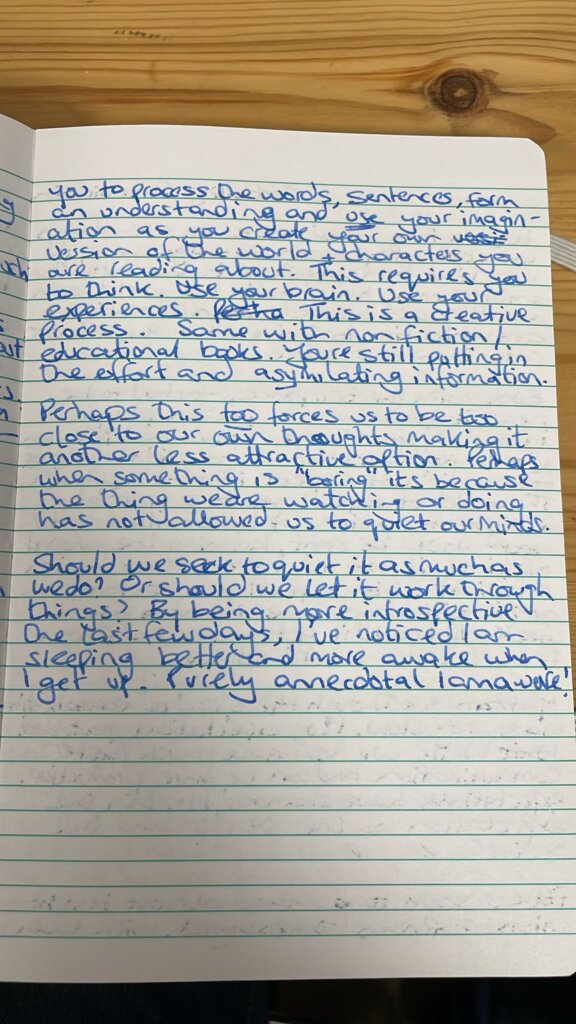 you to process the words, sentences, form
an understanding and use your imagin-
ation as you create your own
version of the world + characters you
are reading about. This requires you
to think. Use your brain. Use your
experiences. This is a creative
process. Same with non fiction/
educational books. Youre still putting in
the effort and asymilating information.
Perhaps this too forces us to be too
close to our own thoughts making it
another less attractive option. Perhaps
when something is "boring" its because
the thing we're watching or doing
has not allowed us to quiet our minds.
Should we seek to quiet it as much as
we do? Or should we let it work through
things? By being more introspective
the last few days, I've noticed I am
sleeping better and more awake when
I get up. Purely annecdotal I am aware!